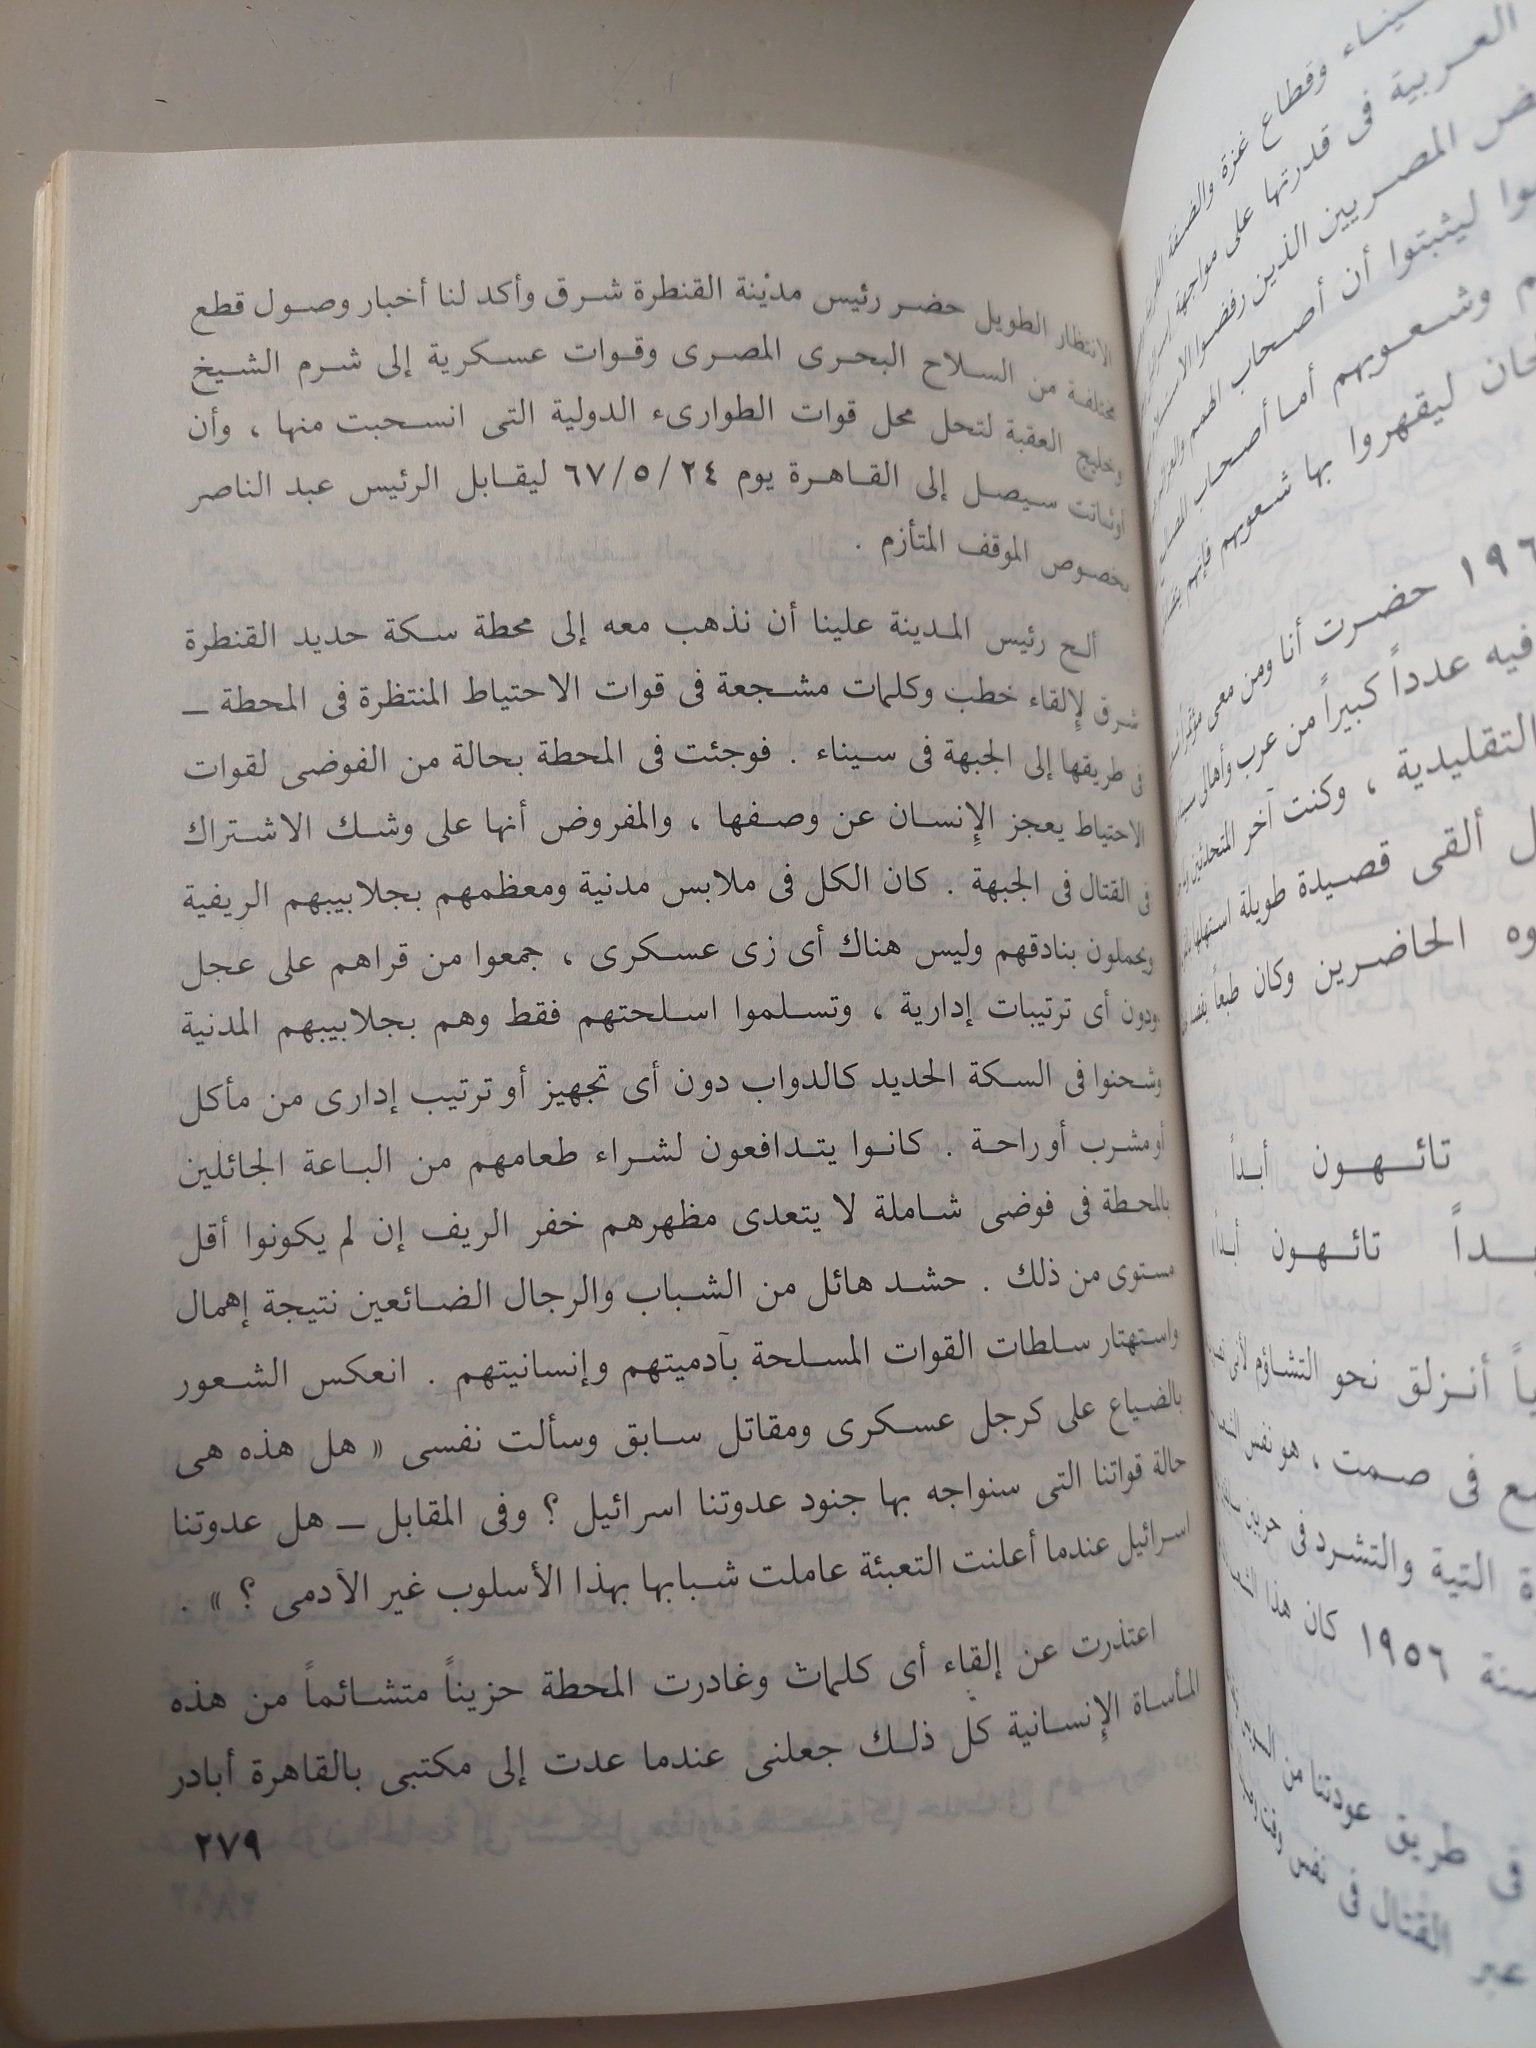 الانتظار الطويل حضر رئيس مدينة القنطرة شرق وأكد لنا أخبار وصول قطع
مختلفة من السلاح البحرى المصرى وقوات عسكرية إلى شرم الشيخ
وخليج العقبة لتحل محل قوات الطوارىء الدولية التى انسحبت منها ، وأن
أوثانت سيصل إلى القاهرة يوم ٦٧/٥/٢٤ ليقابل الرئيس عبد الناصر
بخصوص الموقف المتأزم .
ألح رئيس المدينة علينا أن نذهب معه إلى محطة سكة حديد القنطرة
شرق لإلقاء خطب وكلمات مشجعة فى قوات الاحتياط المنتظرة فى المحطة ــ
فى طريقها إلى الجبهة فى سيناء . فوجئت فى المحطة بحالة من الفوضى لقوات
الاحتياط يعجز الإنسان عن وصفها ، والمفروض أنها على وشك الاشتراك
فى القتال فى الجبهة . كان الكل فى ملابس مدنية ومعظمهم بجلابيبهم الريفية
ويحملون بنادقهم وليس هناك أى زى عسكرى ، جمعوا من قراهم على عجل
ودون أى ترتيبات إدارية ، وتسلموا اسلحتهم فقط وهم بجلابيبهم المدنية
وشحنوا فى السكة الحديد كالدواب دون أى تجهيز أو ترتيب إدارى من مأكل
أو مشرب أو راحة . كانوا يتدافعون لشراء طعامهم من الباعة الجائلين
بالمحطة فى فوضى شاملة لا يتعدى مظهرهم خفر الريف إن لم يكونوا أقل
مستوى من ذلك . حشد هائل من الشباب والرجال الضائعين نتيجة إهمال
واستهتار سلطات القوات المسلحة بآدميتهم وإنسانيتهم . انعكس الشعور
بالضياع على كرجل عسكرى ومقاتل سابق وسألت نفسى « هل هذه هى
حالة قواتنا التى سنواجه بها جنود عدوتنا اسرائيل ؟ وفى المقابل ــ هل عدوتنا
اسرائيل عندما أعلنت التعبئة عاملت شبابها بهذا الأسلوب غير الآدمى ؟ » .
اعتذرت عن إلقاء أى كلمات وغادرت المحطة حزيناً متشائماً من هذه
المأساة الإنسانية كل ذلك جعلنى عندما عدت إلى مكتبى بالقاهرة أبادر
٢٧٩
وقطاع غزة والضفة
العربية فى قدرتها على مواجهة
المصريين الذين رفضوا
ليثبتوا أن أصحاب الهمم
وشعوبهم أما أصحاب
ليقهروا بها شعوبهم فإنهم
حضرت أنا ومن معى
فيه عدداً كبيراً من عرب وأهالى
التقليدية ، وكنت آخر المتحدثين
ألقى قصيدة طويلة استهلها
الحاضرين وكان طبعاً
تائهون أبداً
تائهون أبداً
أنزلق نحو التشاؤم
فى صمت ، هو نفس
التية والتشرد فى
سنة ١٩٥٦ كان هذا
فى طريق عودتنا من
القتال فى نفس
عبر